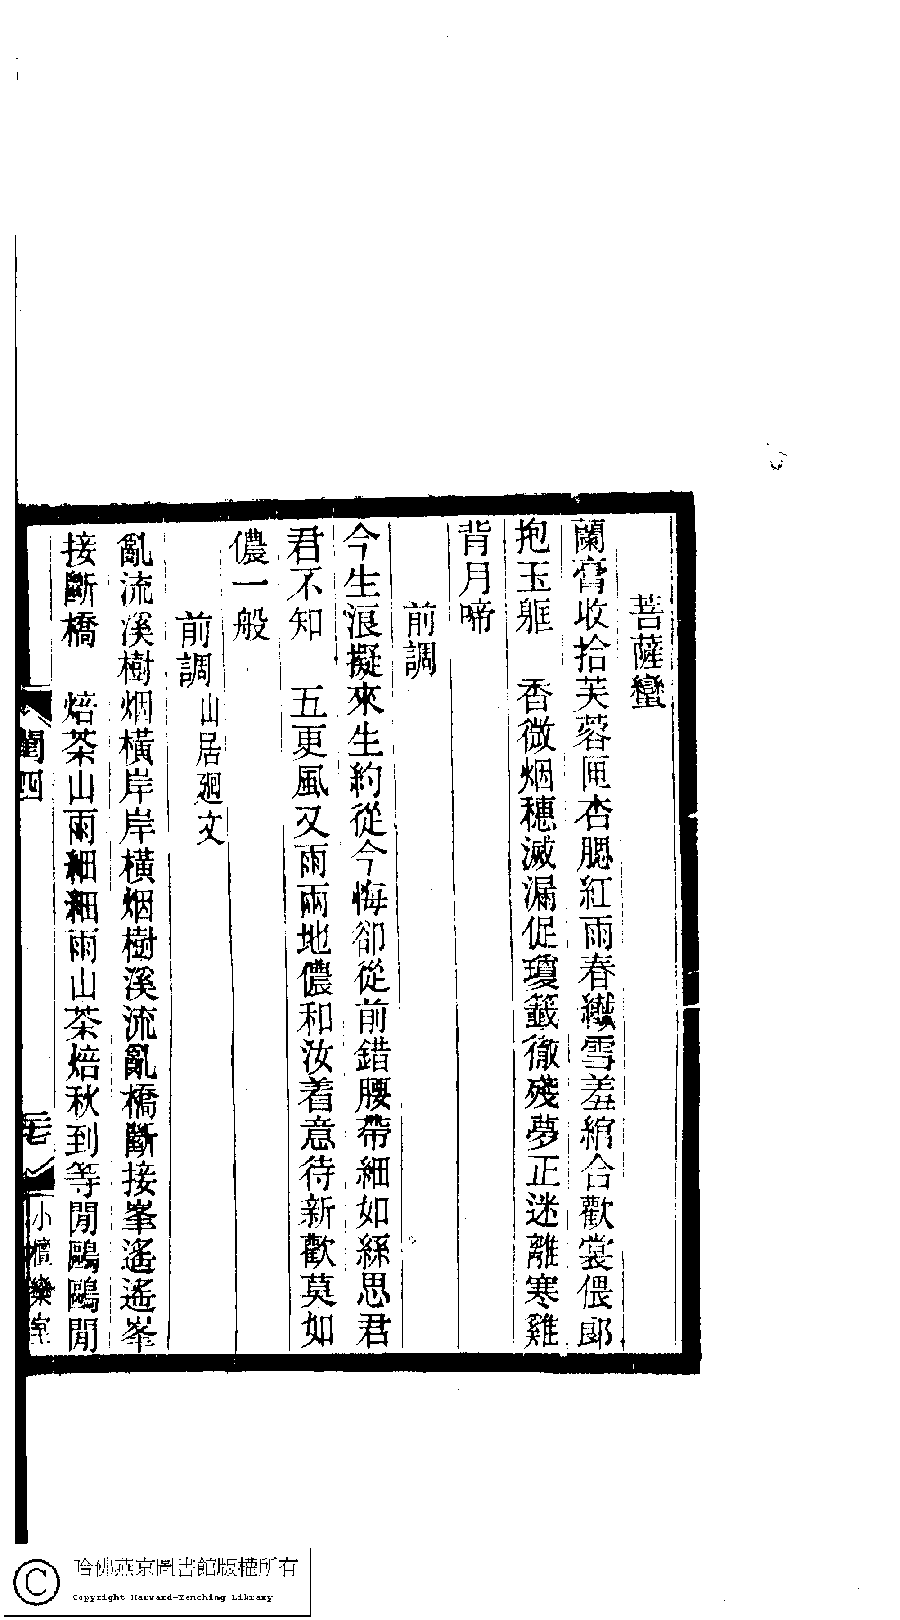 菩薩蠻
蘭膏收拾芙蓉匣杏腮紅雨春纖雪羞綰合歡裳偎郎
抱玉軀　香微烟穗滅漏促瓊籤徹殘夢正迷離寒雞
背月啼
前調
今生浪擬來生約從今悔卻從前錯腰帶細如絲思君
君不知　五更風又雨兩地儂和汝着意待新歡莫如
儂一般
前調 山居廻文
亂流溪樹烟橫岸岸橫烟樹溪流亂橋斷接峯遙遙峯
接斷橋　焙茶山雨細細雨山茶焙秋到等閒鷗鷗閒
閨四
小檀欒室
哈佛燕京圖書館版權所有
Copyright Harvard-Yenching Library